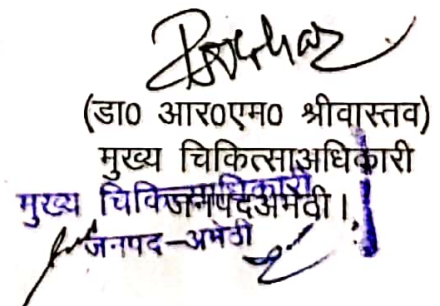 (डा0 आर0एम0 श्रीवास्तव)
मुख्य चिकित्साअधिकारी
जनपदअमेठी।
मुख्य चिकित्साधिकारी
जनपद-अमेठी